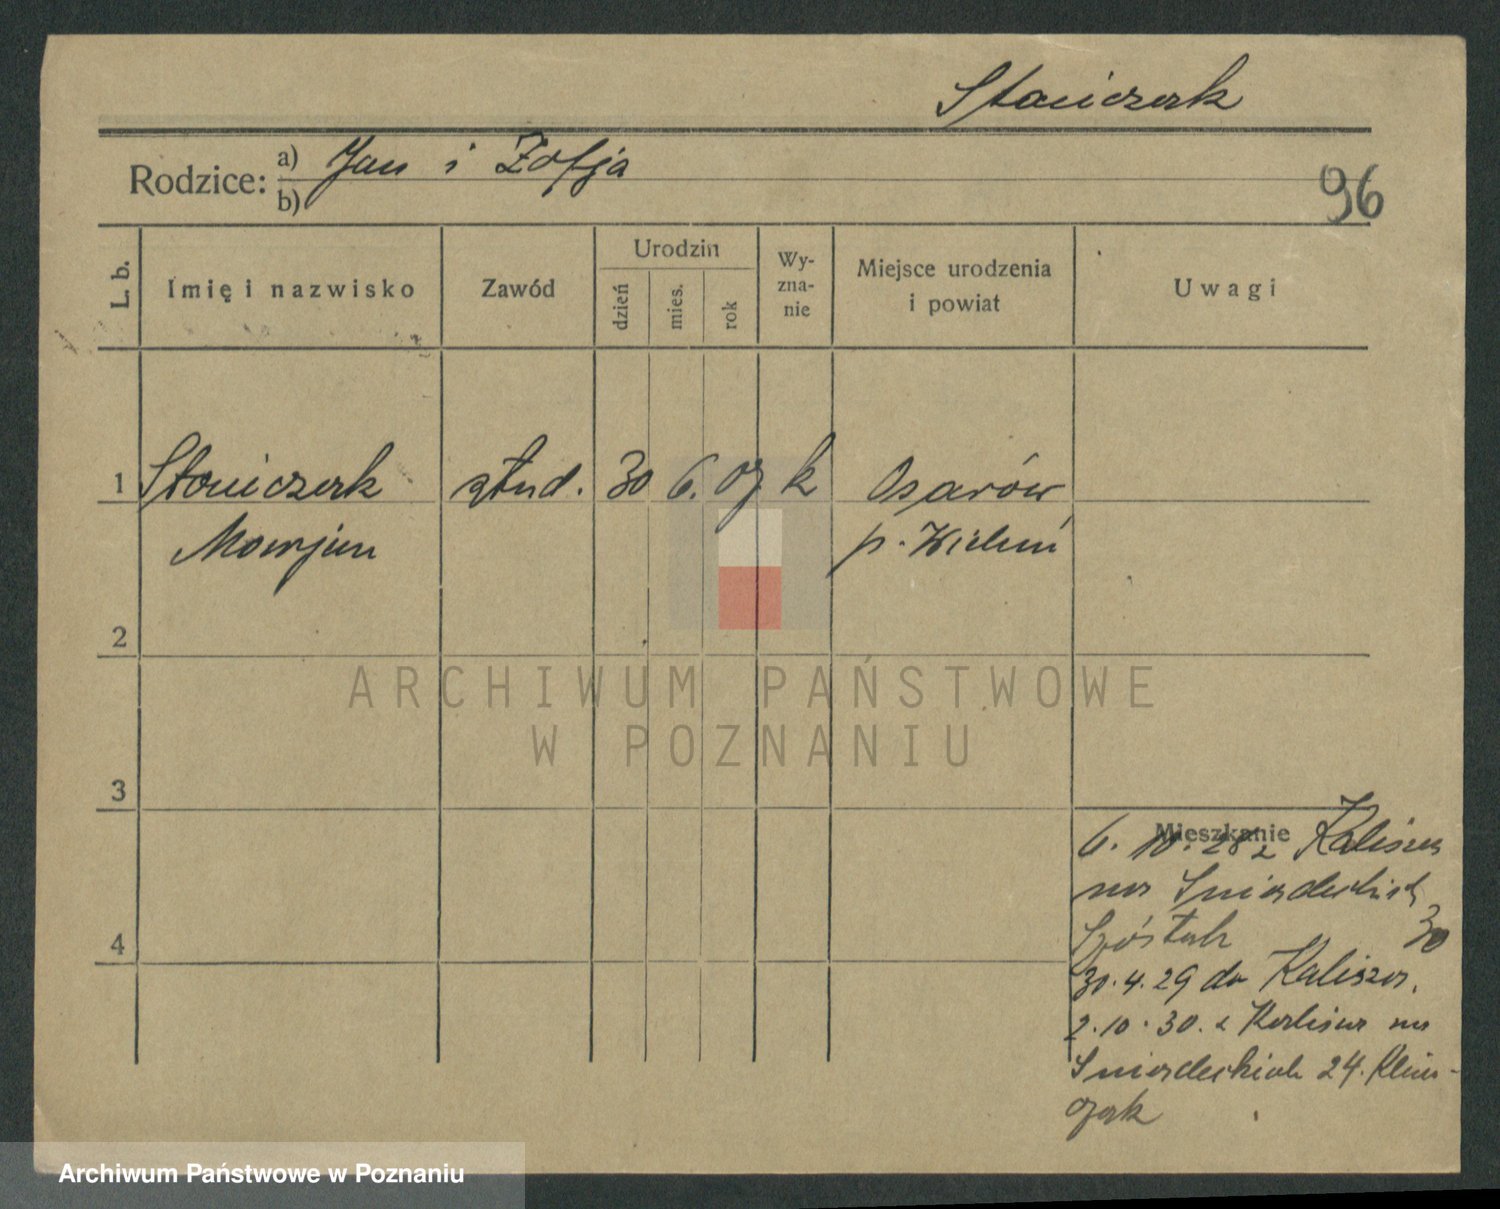 Stańczak
Rodzice: a) Jan i Zofja
b)
96
L. b.
Imię i nazwisko
Zawód
Urodzin
dzień
mies.
rok
Wy-
zna-
nie
Miejsce urodzenia
i powiat
Uwagi
1 Stańczak stud. 30 6. 07 k Osarów
Marjan p. Wieluń
2
ARCHIWUM PAŃSTWOWE
W POZNANIU
3
Mieszkanie
6. 10. 28 z Kalisza
na Śniadeckich
30
4
30.4.29 do Kalisza.
2.10.30. z Kalisza na
Śniadeckich 24.
Archiwum Państwowe w Poznaniu